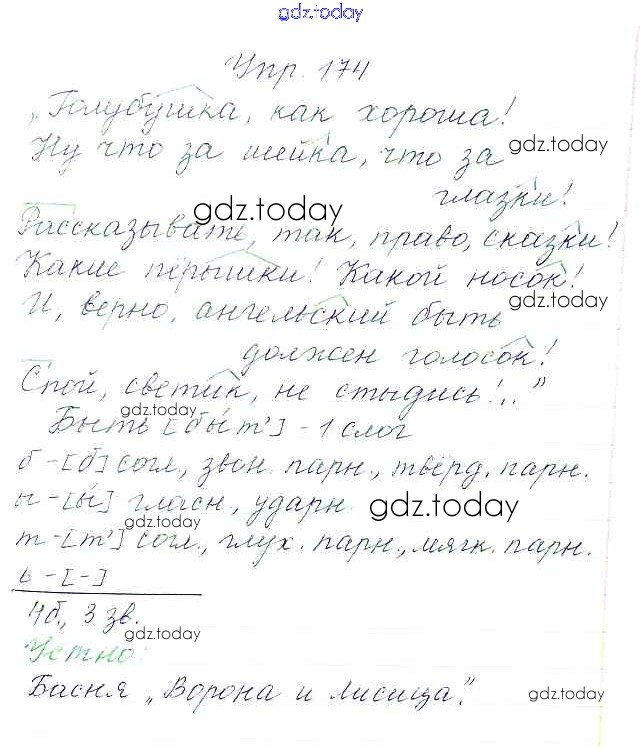 gdz.today
Упр. 174
„Голубушка, как хороша!
Ну что за шейка, что за gdz.today
глазки!
gdz.today
Рассказывать, так, право, сказки!
Какие пёрышки! Какой носок!
gdz.today
И, верно, ангельский быть
должен голосок!
Спой, светик, не стыдись!.."
gdz.today
Быть [бы́т'] - 1 слог
б - [б] согл., звон. парн., твёрд. парн.
ы - [ы́] гласн., ударн. gdz.today
gdz.today
т - [т'] согл., глух. парн., мягк. парн.
ь - [-]
4б., 3 зв.
gdz.today
Устно:
Басня „Ворона и Лисица". gdz.today